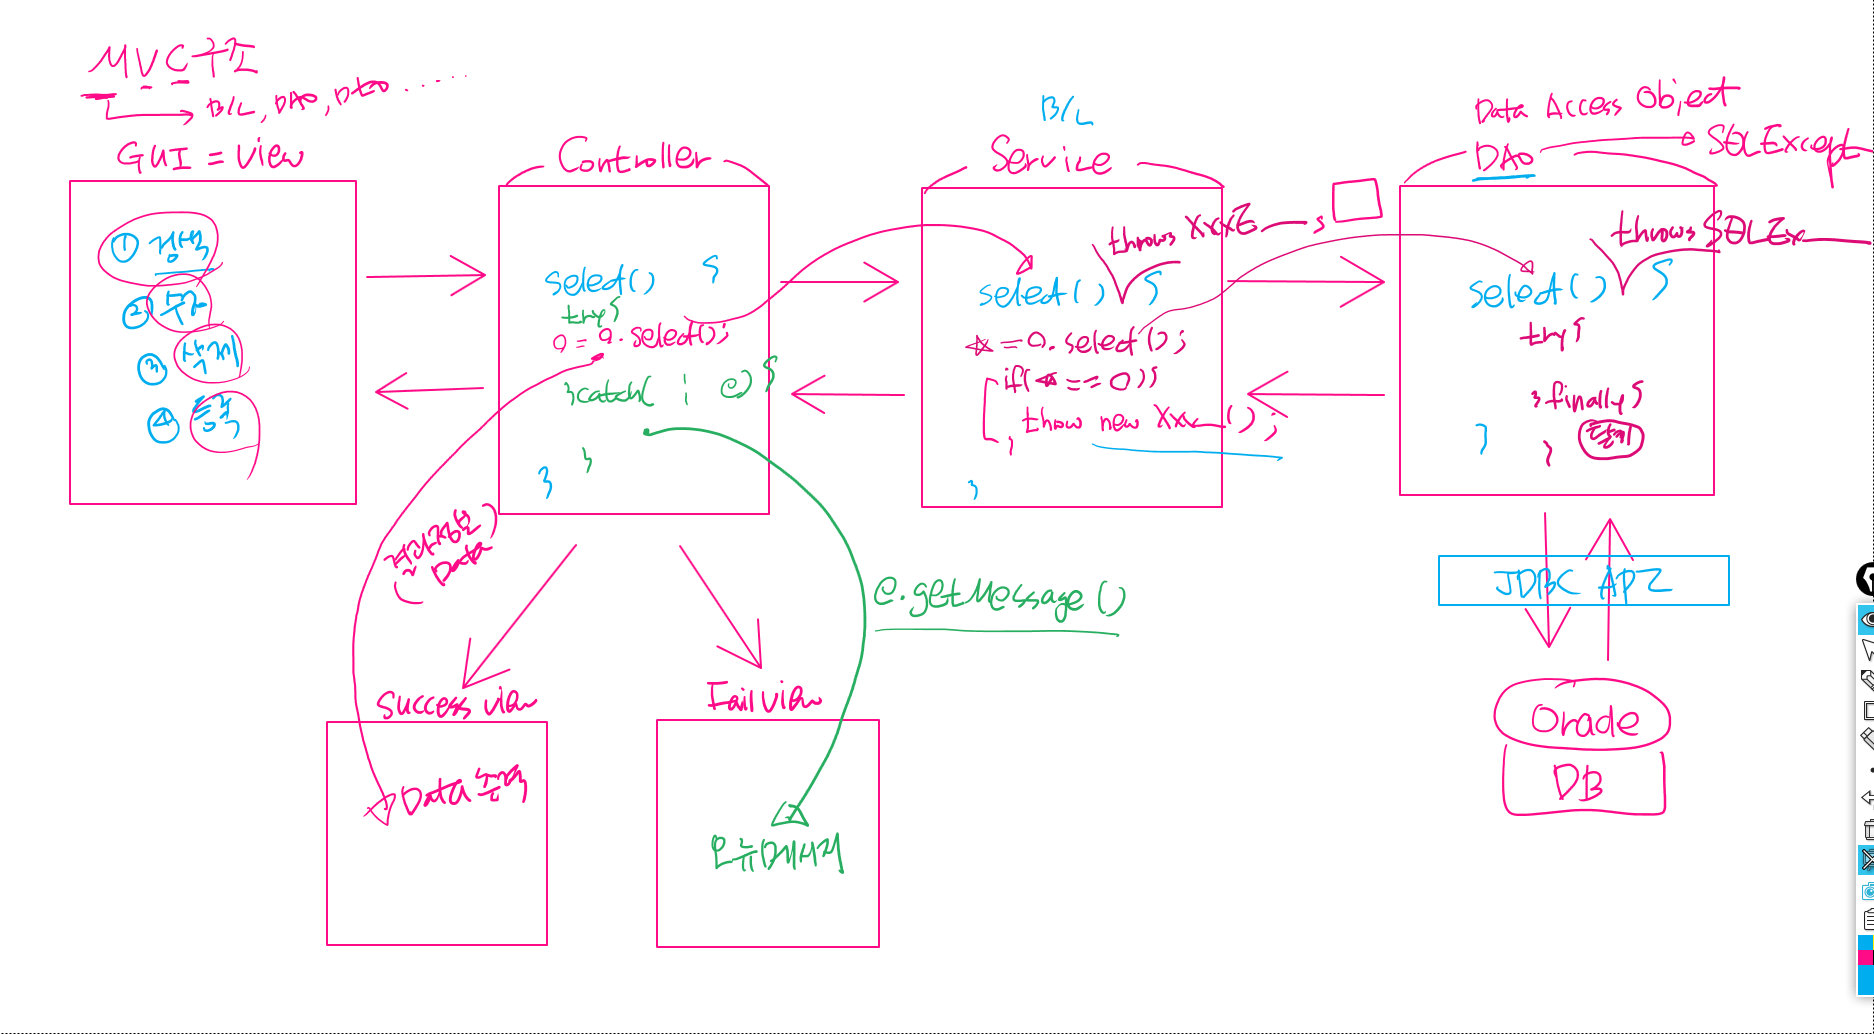 MVC구조
B/L, DAO, DTO .....
GUI = View
① 검색
②
③ 삭제
④ 등록
Controller
select() {
try{
a = a.select();
}catch( ; e) {
}
}
B/L
Service
throws XxxE
select() {
★ = a.select();
if(★ == 0){
throw new Xxx ();
}
}
Data Access Object
DAO
SQLExcept
throws SQLEx
select() {
try{
}finally{
닫기
}
}
JDBC API
Oracle
DB
(결과정보)
Data
e.getMessage()
Success view
Data 출력
Fail view
오류메세지